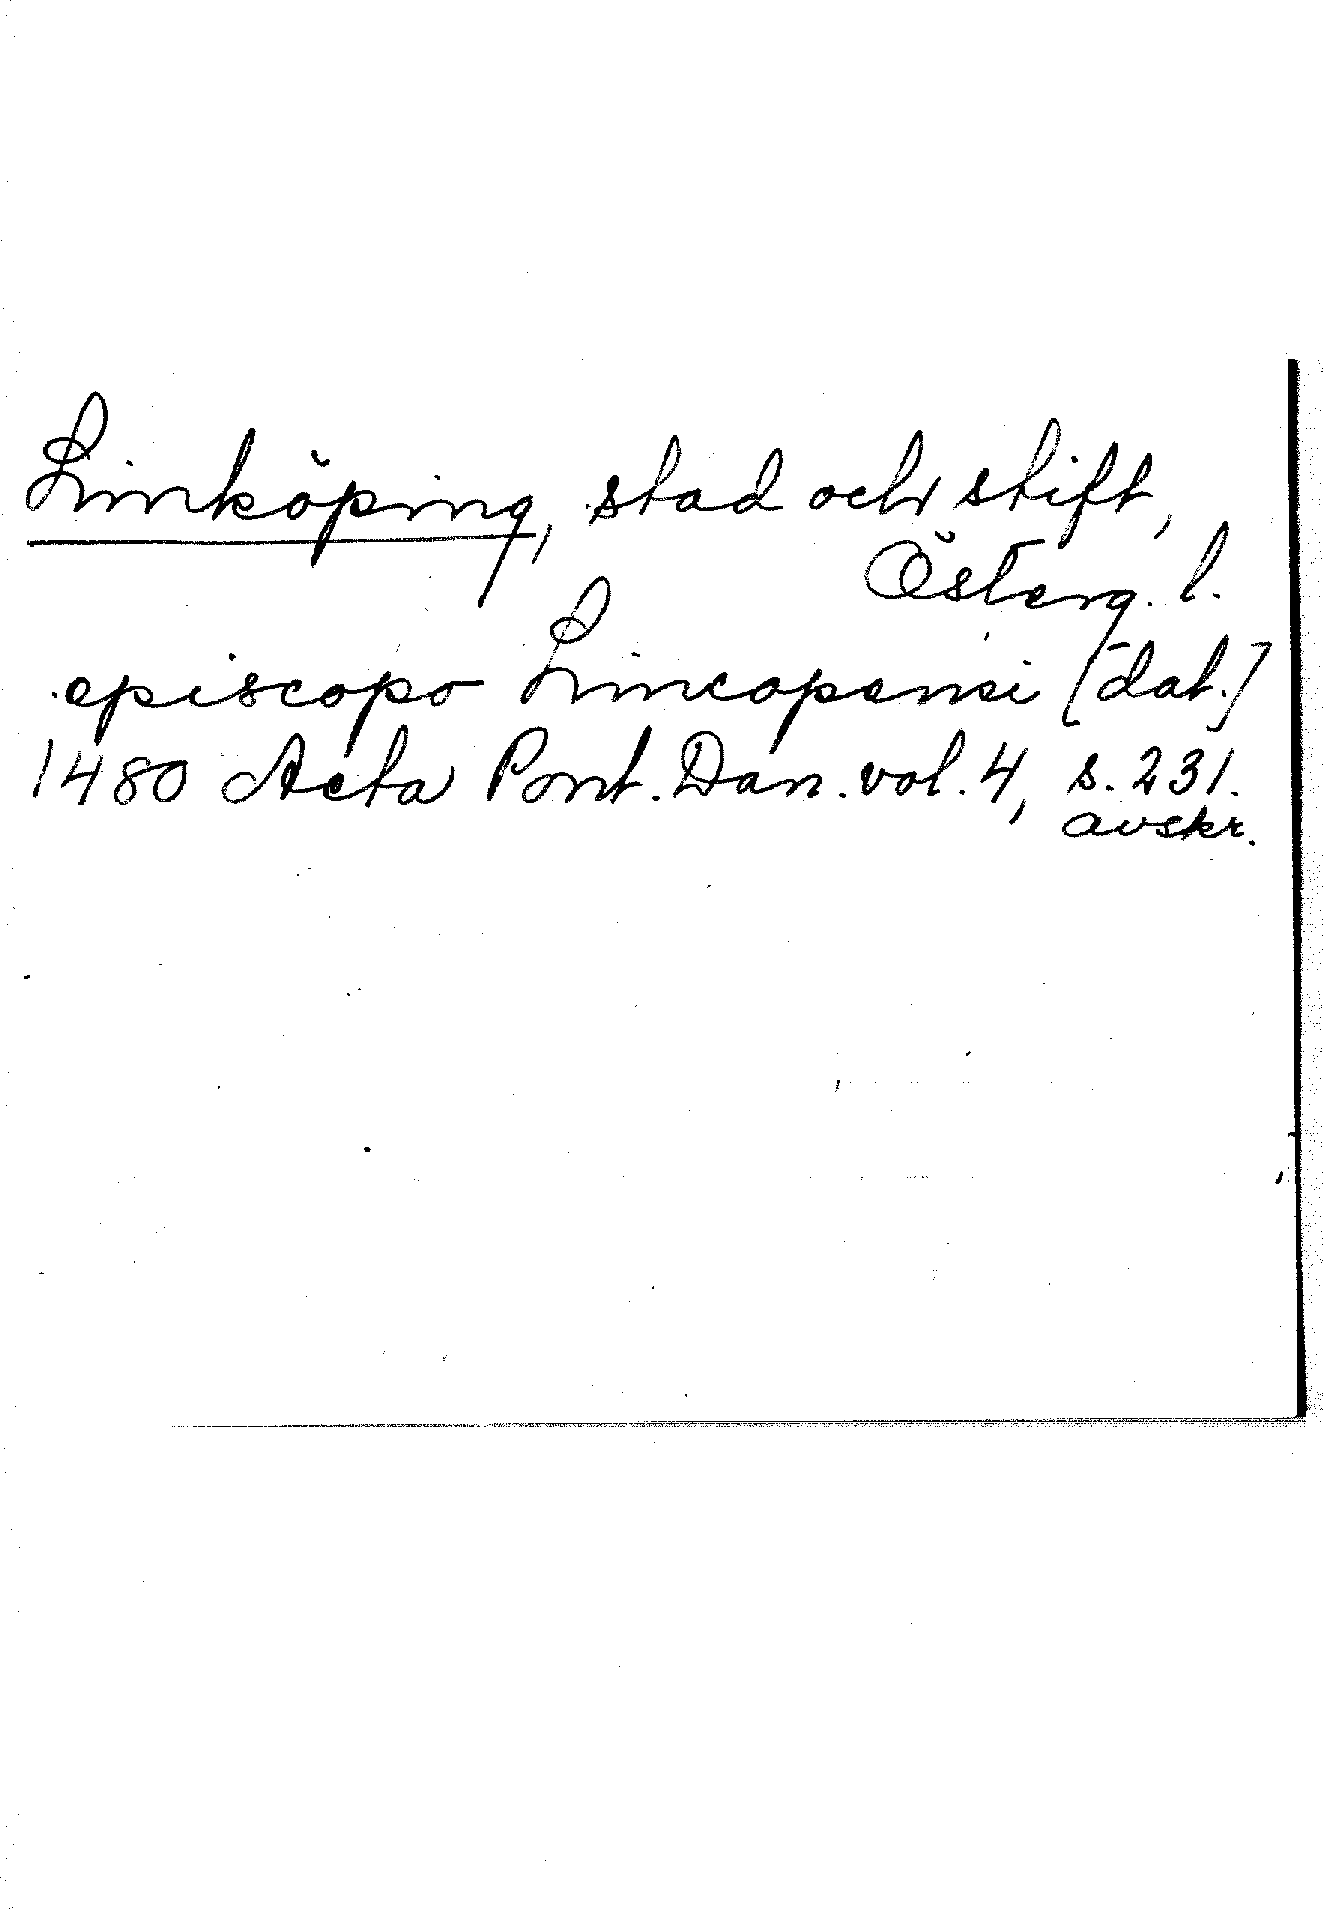 Linköping, stad och stift,
Österg. l.
episcopo Lincopensi [dat.]
1480 Acta Pont. Dan. vol. 4, s. 231.
avskr.